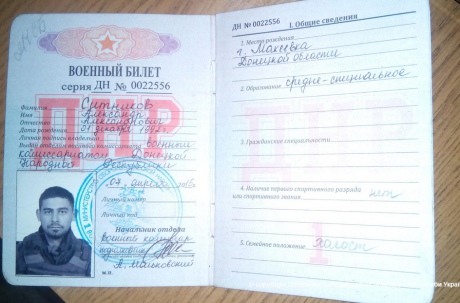 ВОЕННЫЙ БИЛЕТ
серия ДН № 0022556
Фамилия Ситников
Имя Александр
Отчество Александрович
Дата рождения
Личная подпись владельца
Выдан военным
комиссариатом Донецкой
Народной Республики
07 апреля
Личный номер
Личный код
Начальник отдела
военный комиссар
М.П.
ДНР
ДН № 0022556 I. Общие сведения
1. Место рождения
г. Макеевка
Донецкой области
2. Образование средне-специальное
3. Гражданские специальности
4. Наличие первого спортивного разряда
или спортивного звания нет
5. Семейное положение холост
1